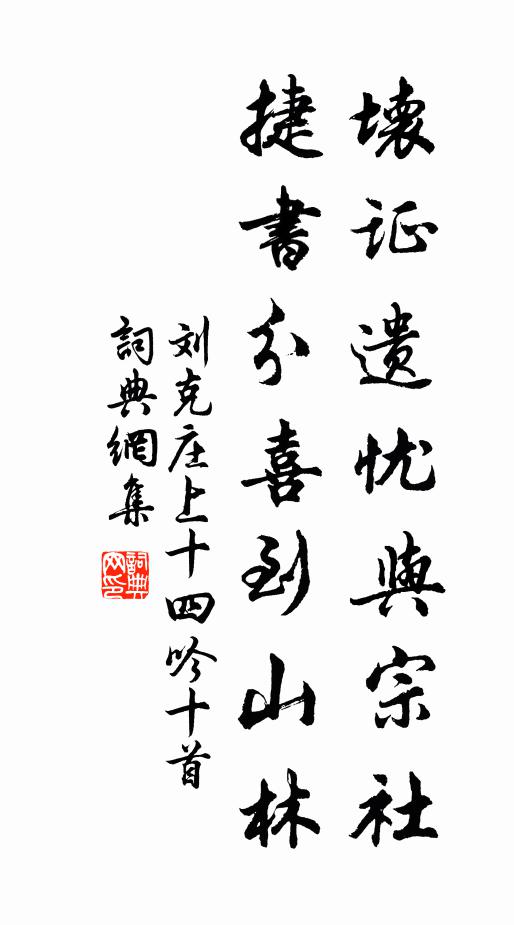 壊证遗忧與宗社
捷書分喜到山林
刘克庄上十四吟十首
詞典網集
詞典网印